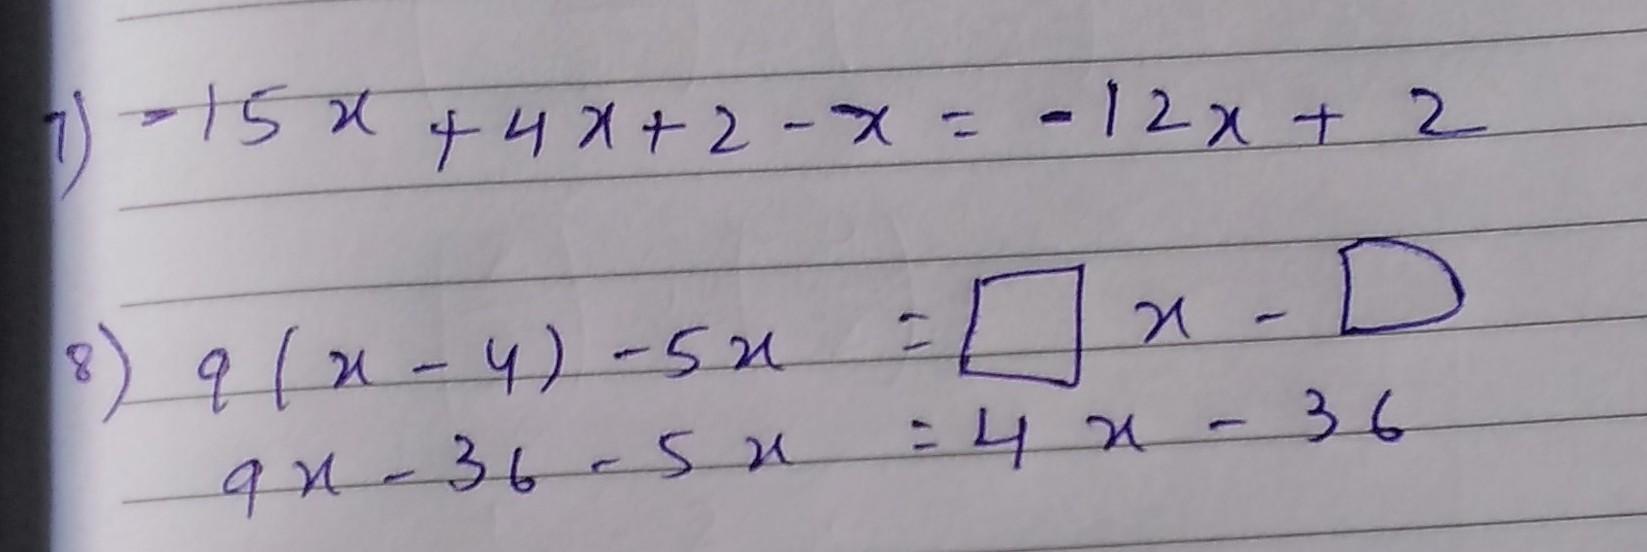 7) -15x + 4x + 2 - x = -12x + 2
8) 9(x - 4) - 5x = □ x - □
9x - 36 - 5x = 4x - 36